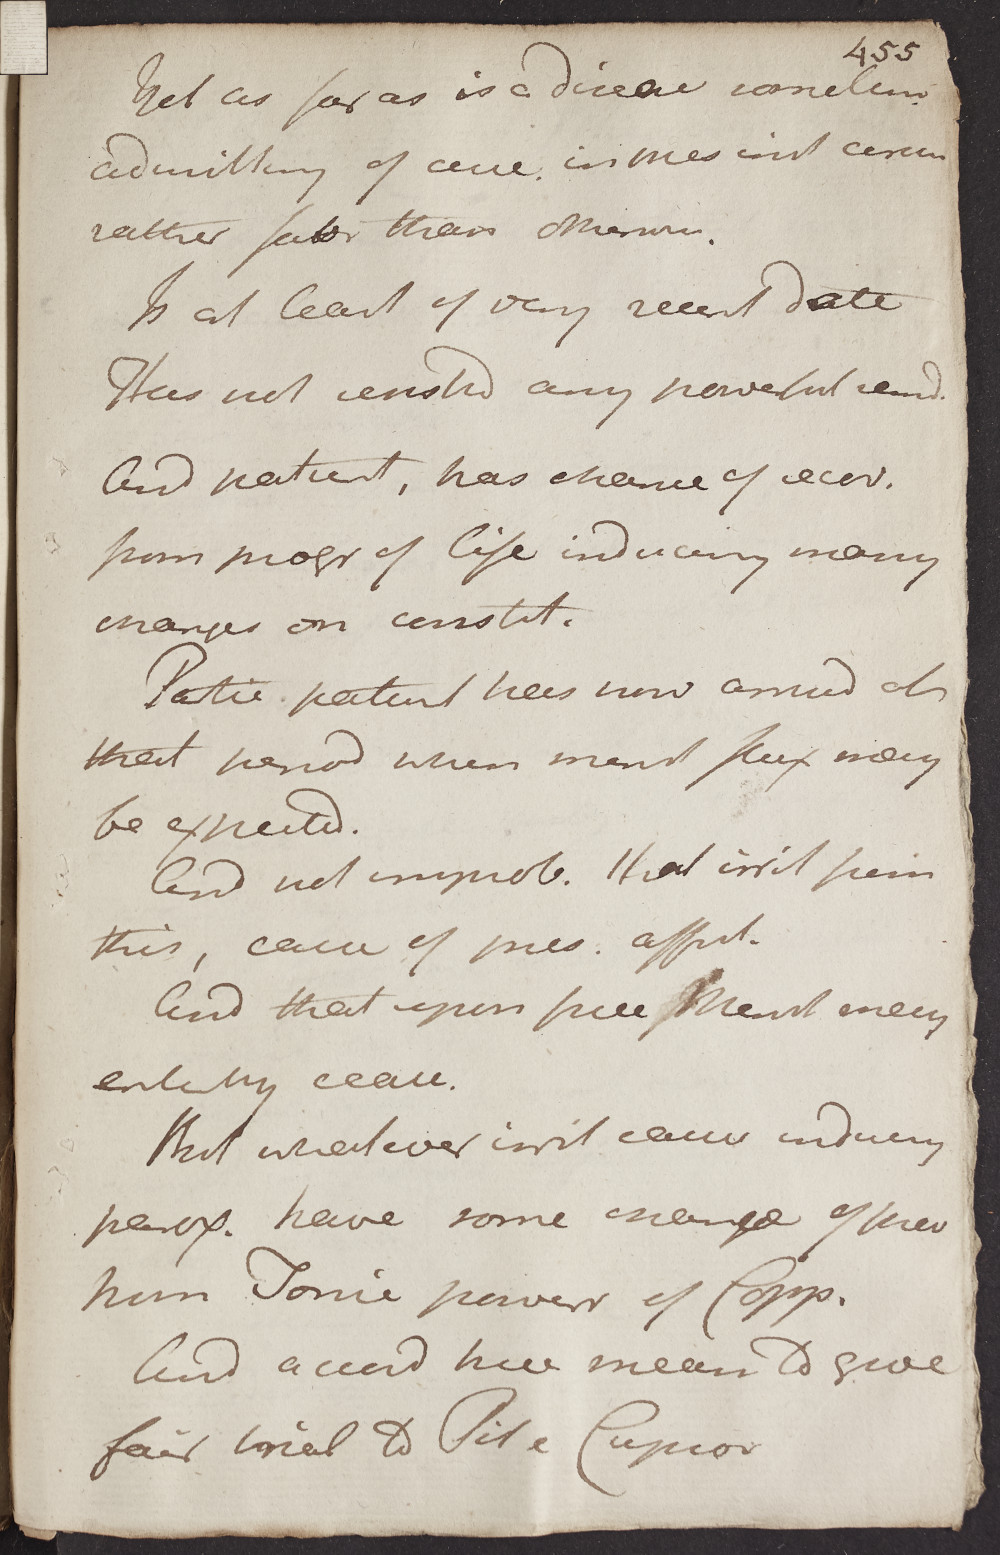 455
Yet as far as is a disease sometim.
admitting of cure. in pres inst circum
rather favr than otherwise.
Is at least of very recent Date
Has not resisted any powerful remed.
And patient, has chance of recov.
from progr of life inducing many
changes on constit.
Partic. patient has now arrived at
that period when menst flux may
be expected.
And not improb. that irrit from
this, cause of pres. affect.
And that upon free Menst may
entirely cease.
But whatever irrit cause inducing
parox. have some change of prev
from Tonic power of Copp.
And accord here mean to give
fair trial to Pil e Cupro